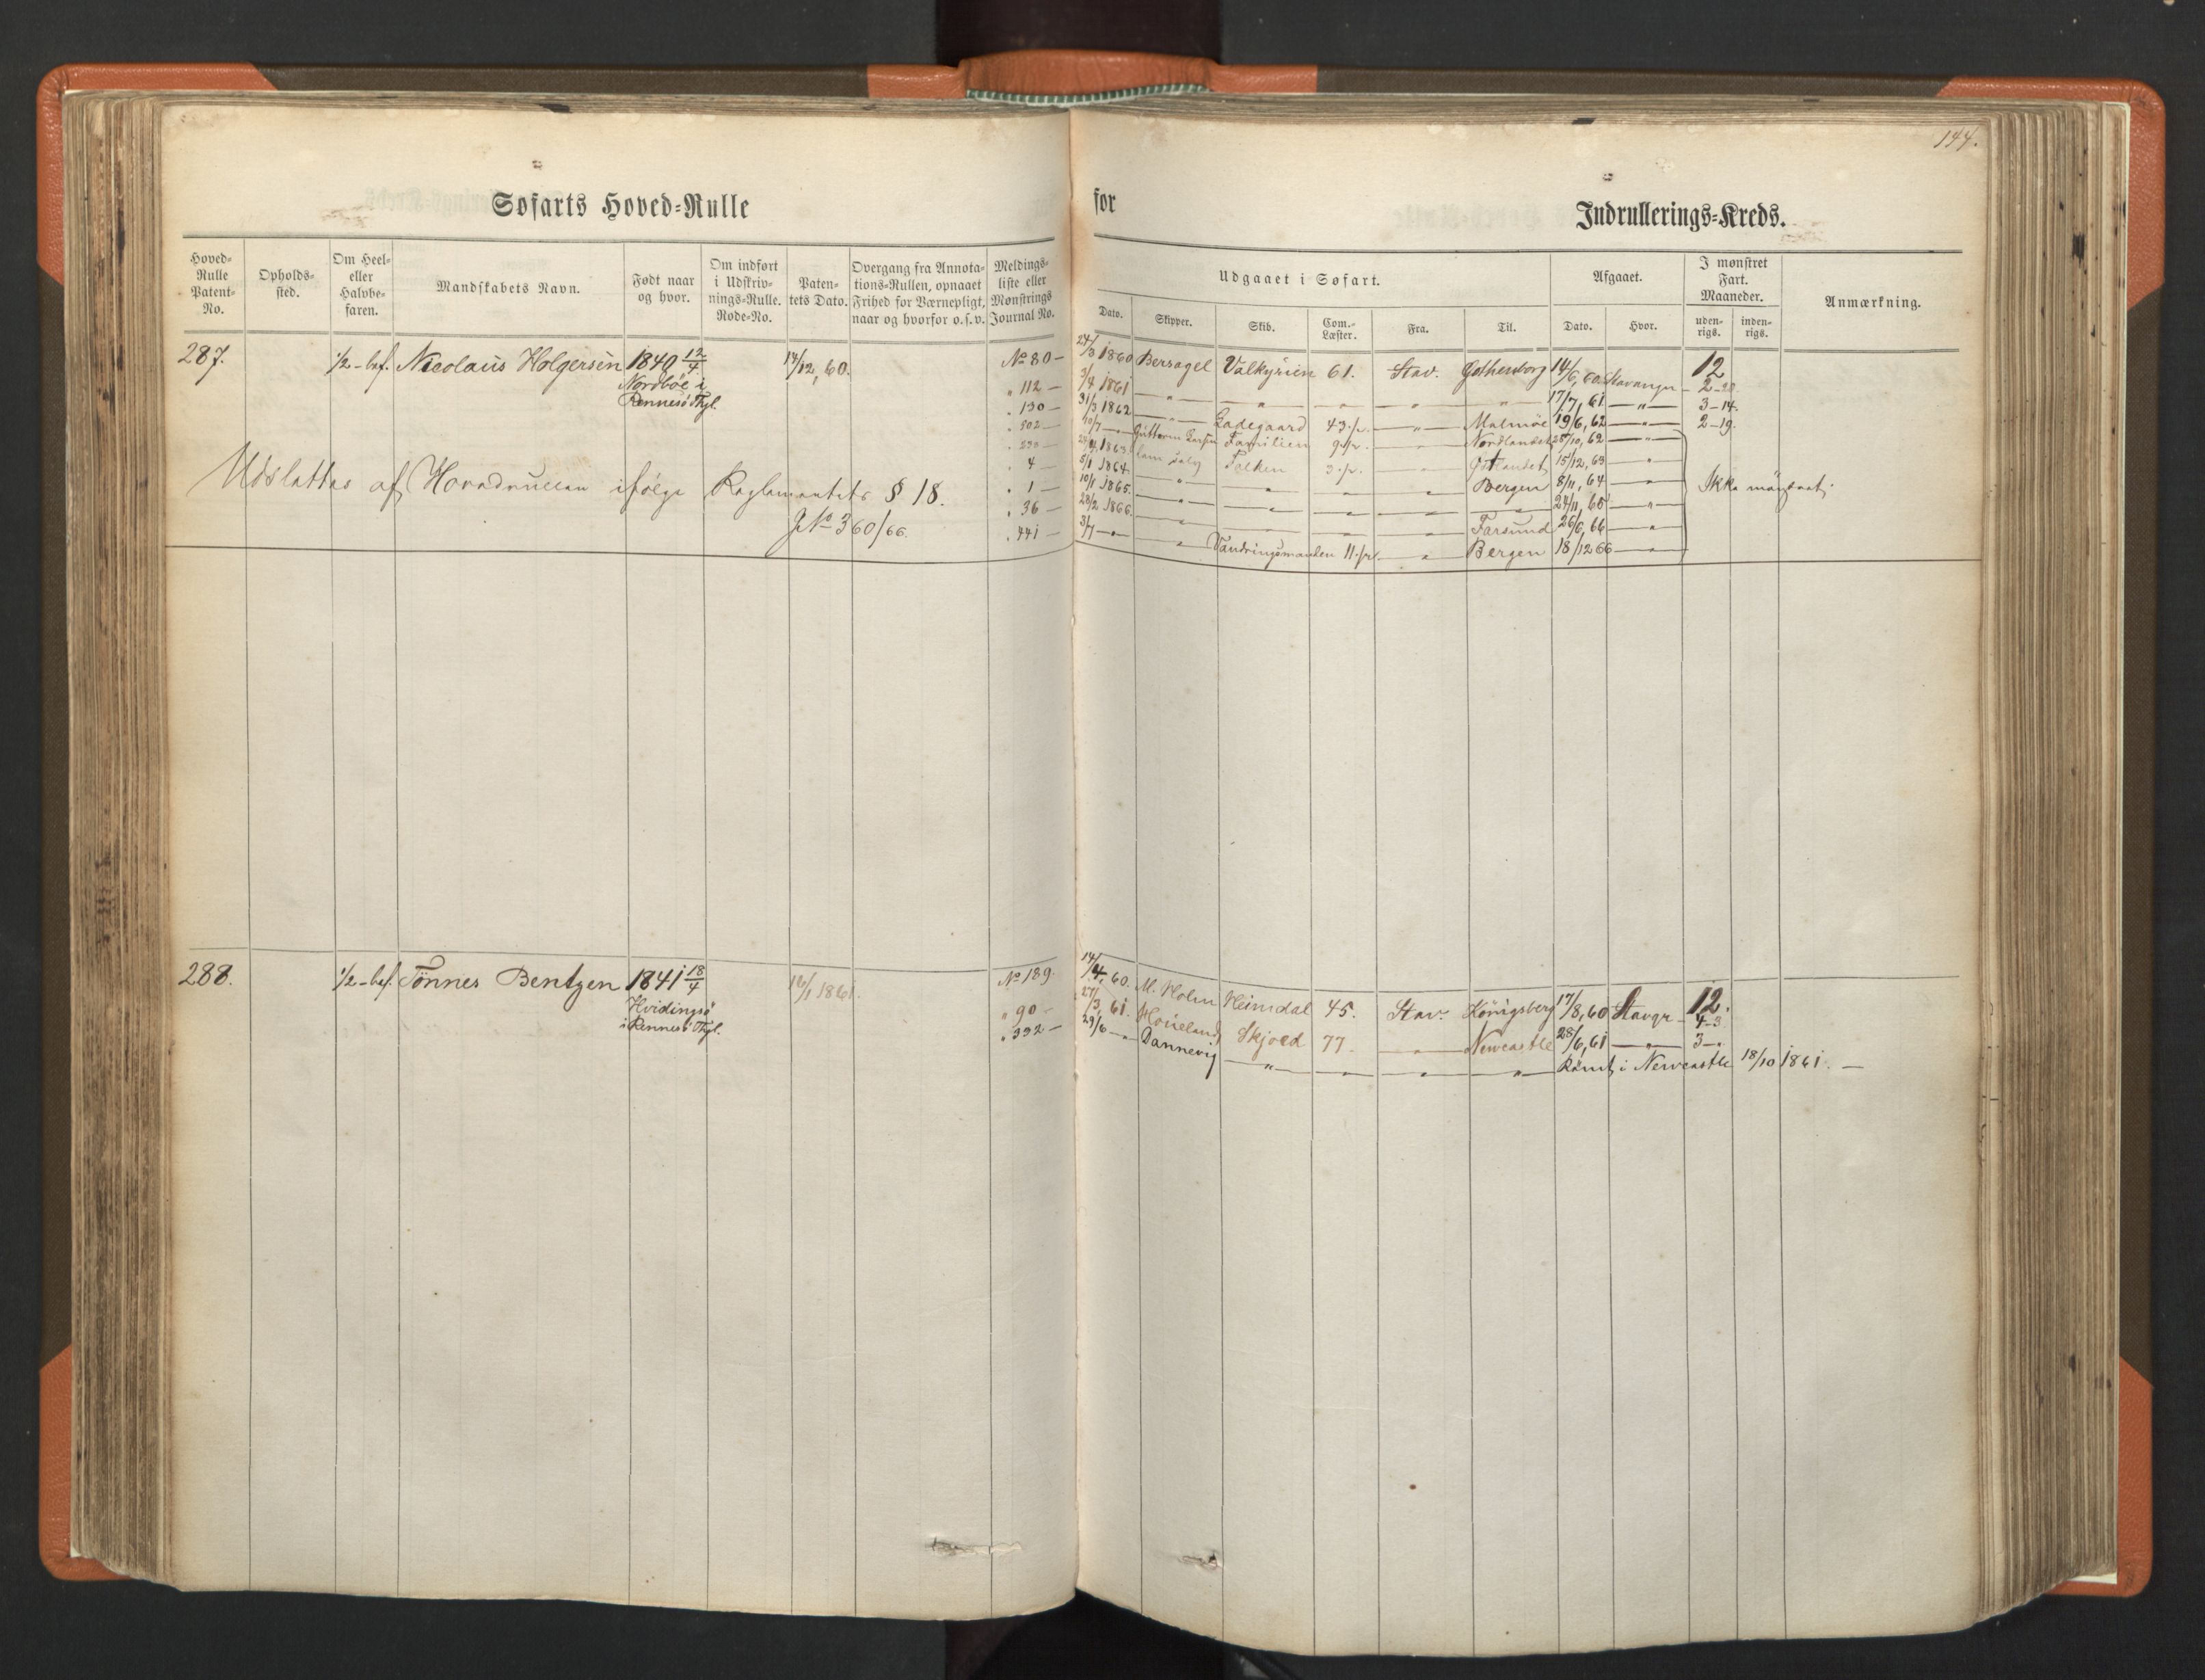 144.
Søfarts Hoved-Rulle for Indrullerings-Kreds.
Hoved-Rulle Patent-No. Opholds-sted. Om Heel- eller Halvbe-faren. Mandskabets Navn. Født naar og hvor. Om indført i Udskriv-nings-Rulle. Rode-No. Paten-tets Dato. Overgang fra Annota-tions-Rullen, opnaaet Frihed for Værnepligt, naar og hvorfor o.s.v. Meldings-liste eller Mønstrings Journal No.
Udgaaet i Søfart. Afgaaet. I mønstret Fart. Maaneder. Anmærkning.
Dato. Skipper. Skib. Com.-Læster. Fra. Til. Dato. Hvor. uden-rigs. inden-rigs.
287. 1/2-bef. Nicolaus Holgersen 1840 12/4 14/12, 60. No 80 - 24/3 1860 Bersagel Valkyrien 61. Stav. Gothenborg 14/6, 60. Stavanger 12
Nordböe i " 112 - 3/4 1861 " " " " " 17/7, 61 " 2-20
Rennesö Thgl. " 130 - 31/3 1862 " Ladegaard 43 " Malmöe 19/6, 62 " 3-14.
" 502 - 10/7 " Guttorm Larsen Familien 9 " Nordlandet 28/10, 62 " 2-19.
1863 Falken 3 15/12, 63 "
Udslettes af Hovedrullen ifølge Reglementets § 18. " 4 - 5/1 1864 " " " " Bergen 8/11, 64 " Ikke mönstret.
" 1 - 10/1 1865. " " " " " 24/11, 65 "
J No 360/66. " 36 - 28/2 1866. " " " " Farsund 26/6, 66 "
" 441 - 3/7 " " Vandringsmanden 11 " Bergen 18/12 66 "
288. 1/2-bef. Tönnes Bentzen 1841 18/4 16/1 1861. No 189. 14/4, 60. M. Holm Heimdal 45. Stav. Königsberg 17/8, 60 Stavgr 12.
Hvidingsö " 90 - 27/3, 61. Houeland Skjold 77. " Newcastle 28/6, 61 " 4-3
i Rennesö Thgl. " 392 - 29/6 " Dannevig " " " " Römt i Newcastle 18/10 1861. - 3-"